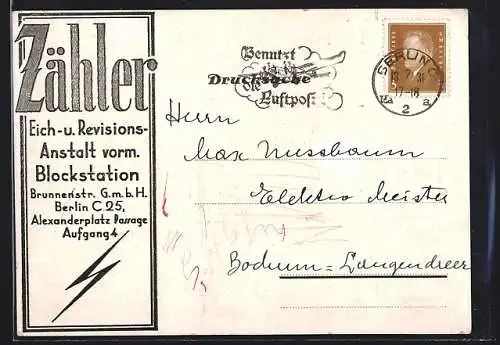 Zähler
Eich-u. Revisions-
Anstalt vorm.
Blockstation
Brunnenstr. G.m.b.H.
Berlin C 25,
Alexanderplatz Passage
Aufgang 4
Benutzt
Drucksache
die
Luftpost
BERLIN C
17-18
2
a
Herrn
Max Nussbaum
Elektro Meister
Bochum-Langendreer